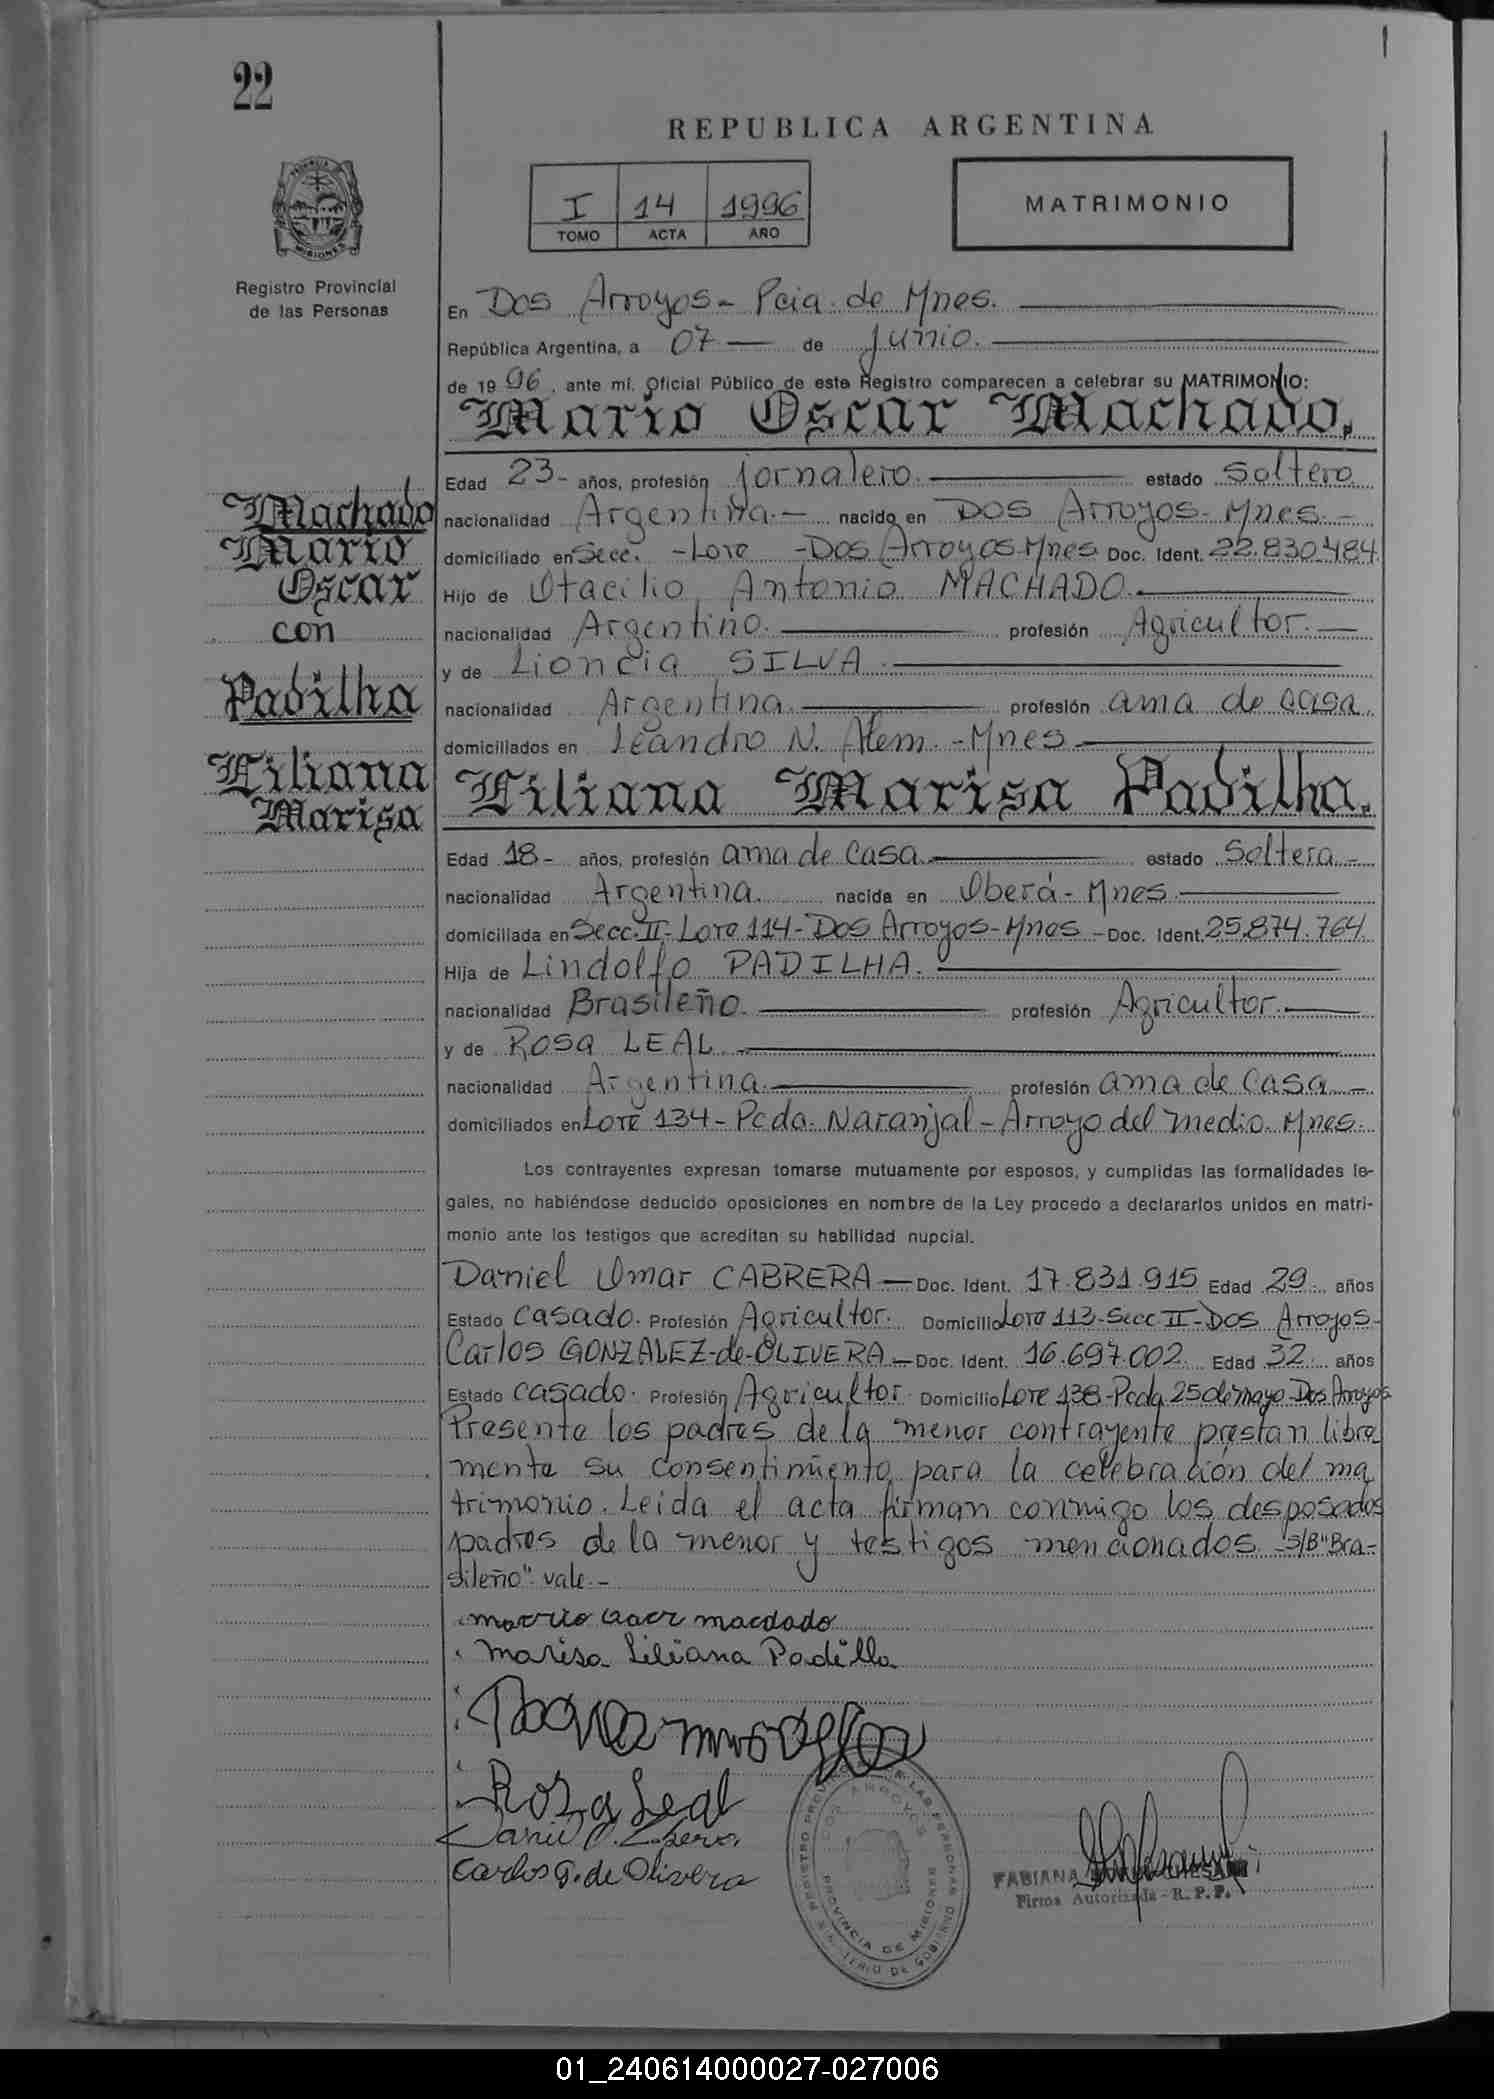 22
REPUBLICA ARGENTINA
I 14 1996
TOMO ACTA AÑO
MATRIMONIO
PROVINCIA
MISIONES
Registro Provincial
de las Personas
En Dos Arroyos - Pcia. de Mnes.
República Argentina, a 07 de junio.
de 19 96, ante mí, Oficial Público de este Registro comparecen a celebrar su MATRIMONIO:
Mario Oscar Machado.
Edad 23- años, profesión jornalero. estado Soltero
nacionalidad Argentina.- nacido en Dos Arroyos- Mnes.-
domiciliado en Secc. - Lote - Dos Arroyos-Mnes. Doc. Ident. 22.830.484.
Hijo de Otacilio Antonio MACHADO.
nacionalidad Argentino. profesión Agricultor.
y de Lioncia SILVA.
nacionalidad Argentina. profesión ama de casa.
domiciliados en Leandro N. Alem.-Mnes
Machado
Mario
Oscar
con
Padilha
Liliana
Marisa
Liliana Marisa Padilha.
Edad 18- años, profesión ama de casa. estado Soltera.-
nacionalidad Argentina. nacida en Oberá- Mnes.
domiciliada en Secc. II- Lote 114- Dos Arroyos- Mnes.-Doc. Ident. 25.874.764
Hija de Lindolfo PADILHA.
nacionalidad Brasileño. profesión Agricultor.
y de Rosa LEAL.
nacionalidad Argentina. profesión ama de casa.-
domiciliados en Lote 134- Pcda. Naranjal- Arroyo del medio. Mnes.
Los contrayentes expresan tomarse mutuamente por esposos, y cumplidas las formalidades le-
gales, no habiéndose deducido oposiciones en nombre de la Ley procedo a declararlos unidos en matri-
monio ante los testigos que acreditan su habilidad nupcial.
Daniel Omar CABRERA - Doc. Ident. 17.831.915 Edad 29 años
Estado casado. Profesión Agricultor. Domicilio Lote 113-Secc II- Dos Arroyos-
Carlos GONZALEZ-de-OLIVERA - Doc. Ident. 16.697.002 Edad 32 años
Estado casado. Profesión Agricultor. Domicilio Lote 138-Pcda 25 de mayo-Dos Arroyos
Presente los padres de la menor contrayente prestan libre
mente su consentimiento para la celebración del ma
trimonio. Leida el acta firman conmigo los desposados
padres de la menor y testigos mencionados.-S/B"Bra-
sileño" vale.-
marisa Liliana Padilla
Roza Leal
Carlos G. de Olivera
DOS ARROYOS
PROVINCIA DE MISIONES
FABIANA
Firma Autorizada - R. P. P.
01_240614000027-027006